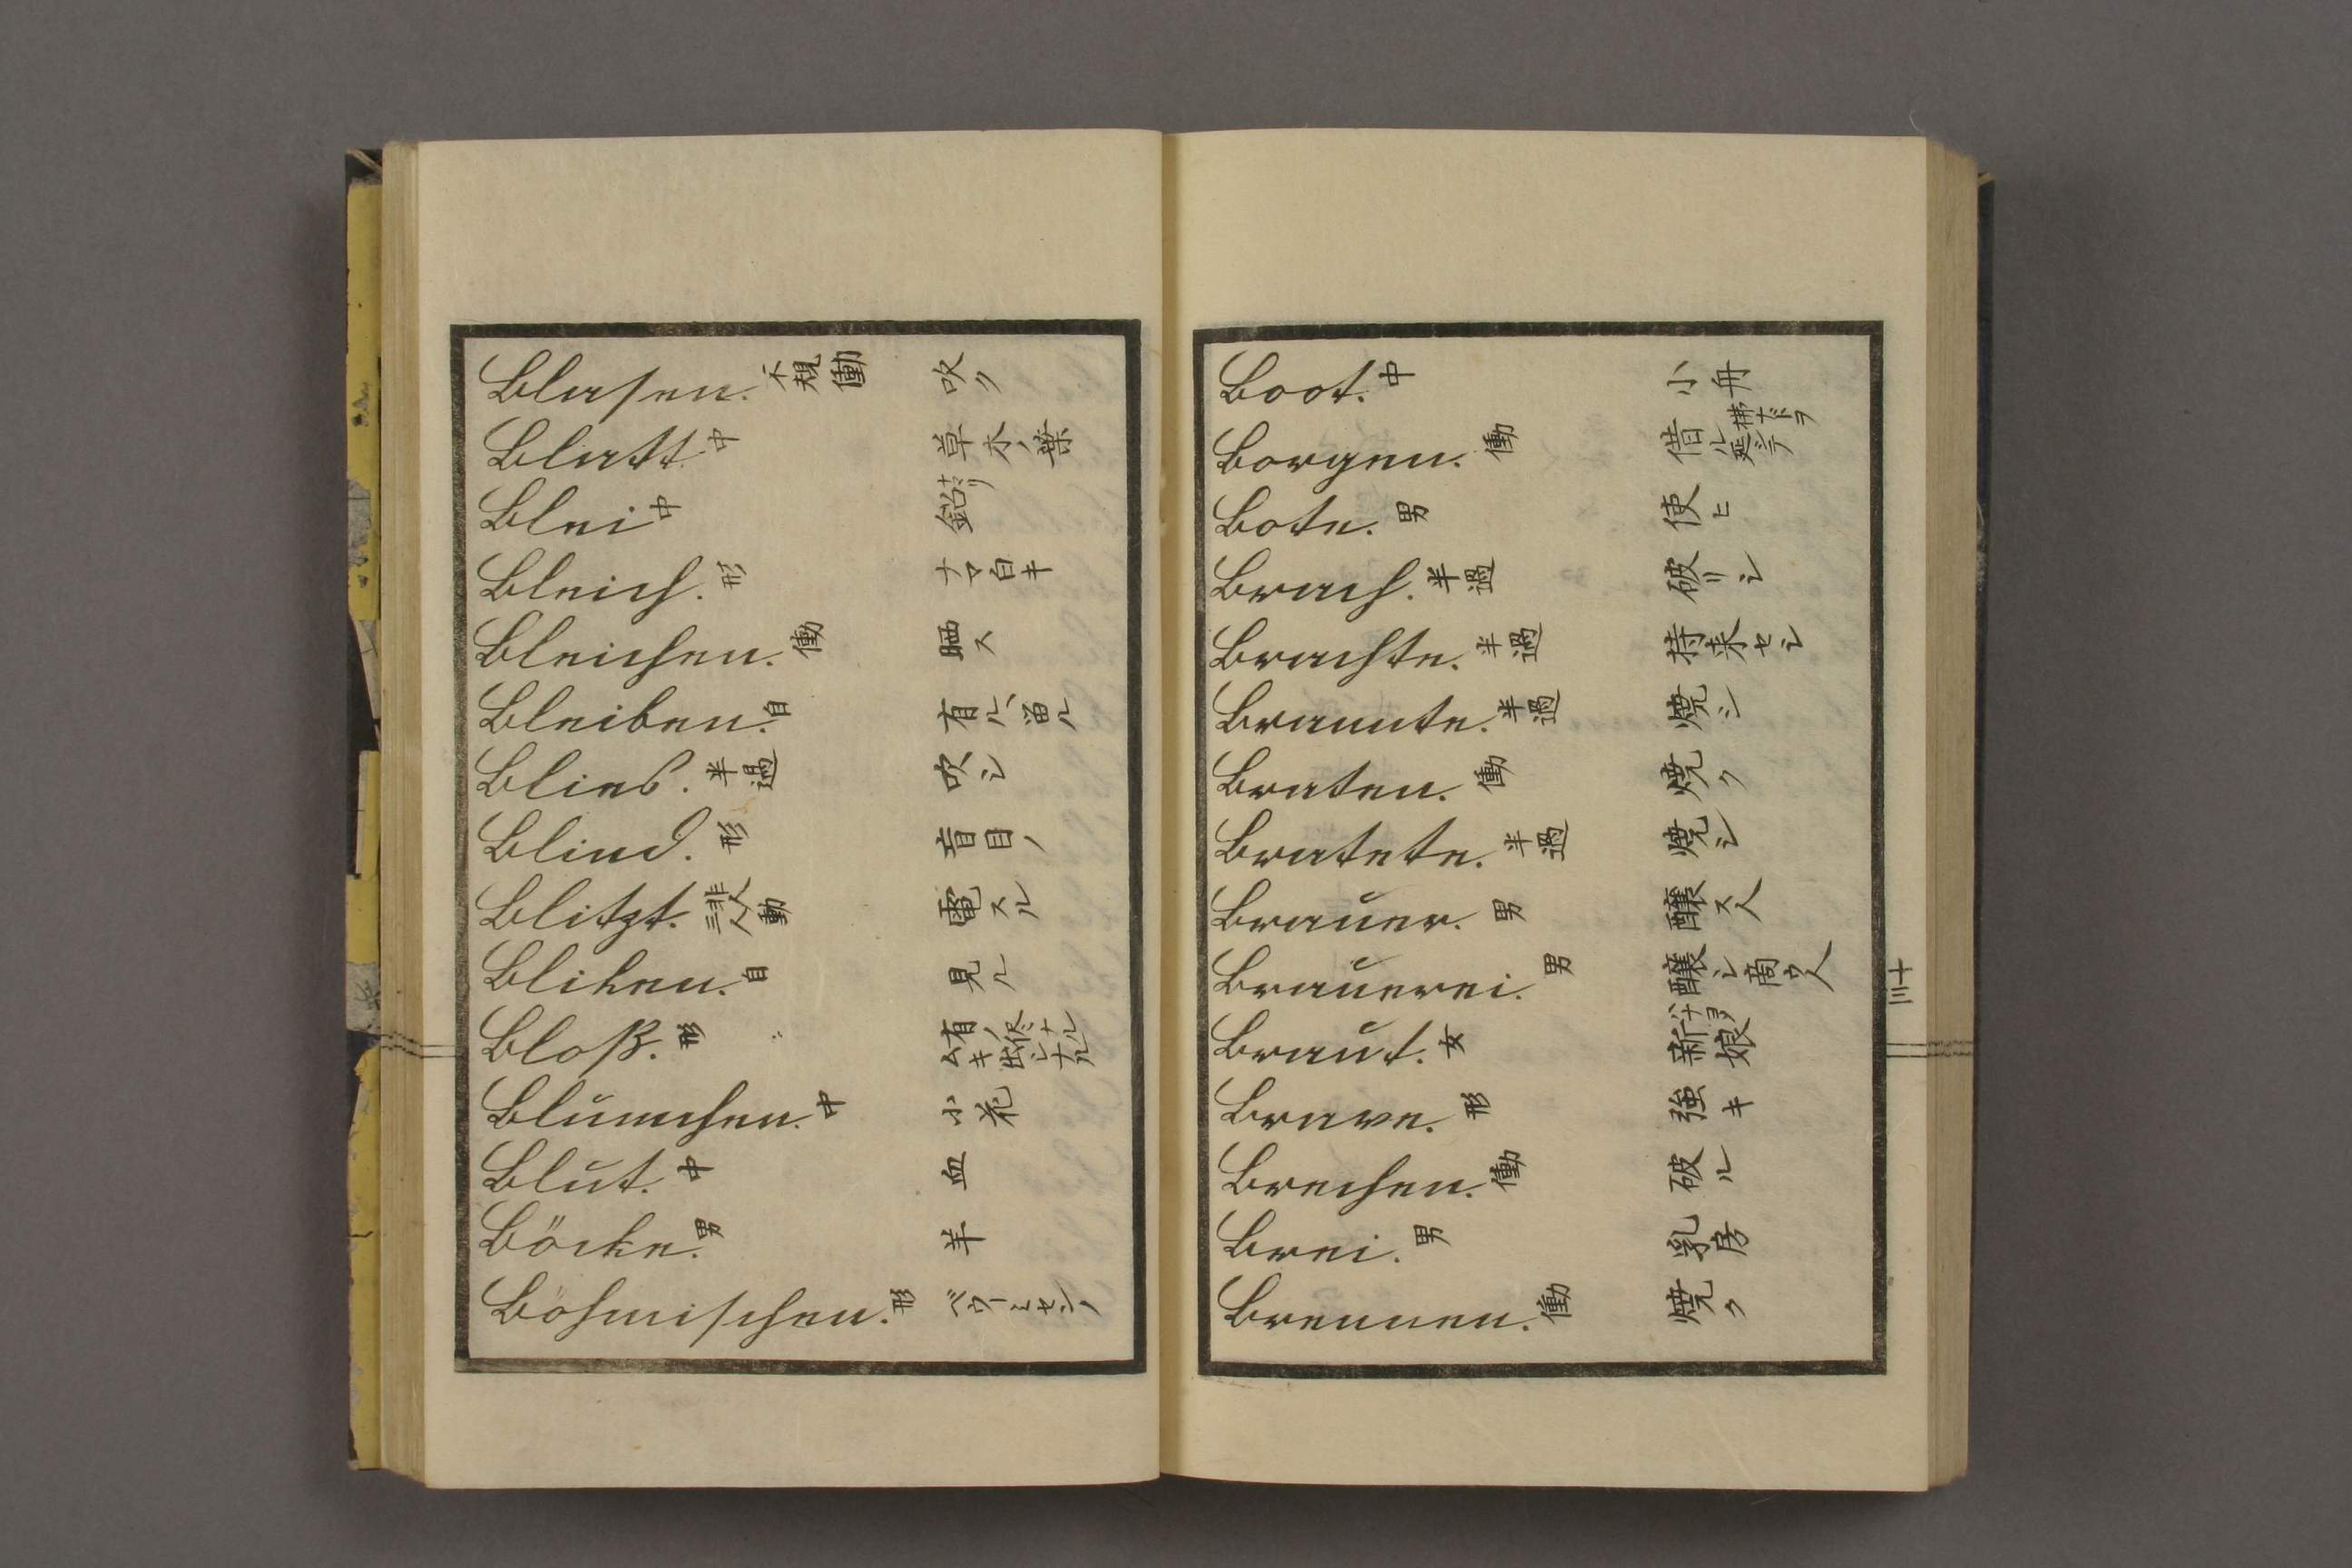 Blasen. 不規働 吹ク
Blatt 中 草木ノ葉
Blei 中 鉛ナマリ
Bleich. 形 ナマ白キ
Bleichen. 働 晒ス
Bleiben. 自 有ル、留ル
Blies. 半過 吹シ
Blind. 形 盲目ノ
Blitzt. 非人三人動 電スル
Bliken. 自 見ル
Bloß. 形
Blumchen. 中 小花
Blut. 中 血
Böcke. 男 羊
Böhmischen. 形
Boot. 中 小舟
Borgen. 働 借ル
Bote. 男 使ヒ
Brach. 半過 破リシ
Brachte. 半過 持来セシ
Brannte. 半過 焼シ
Braten. 働 焼ク
Bratete. 半過 焼シ
Brauer. 男 醸ス人
Brauerei. 男 醸シ商ウ人
Braut. 女 新娘
Brave. 形 強キ
Brechen. 働 破ル
Brei. 男 乳房
Brennen. 働 焼ク
十三